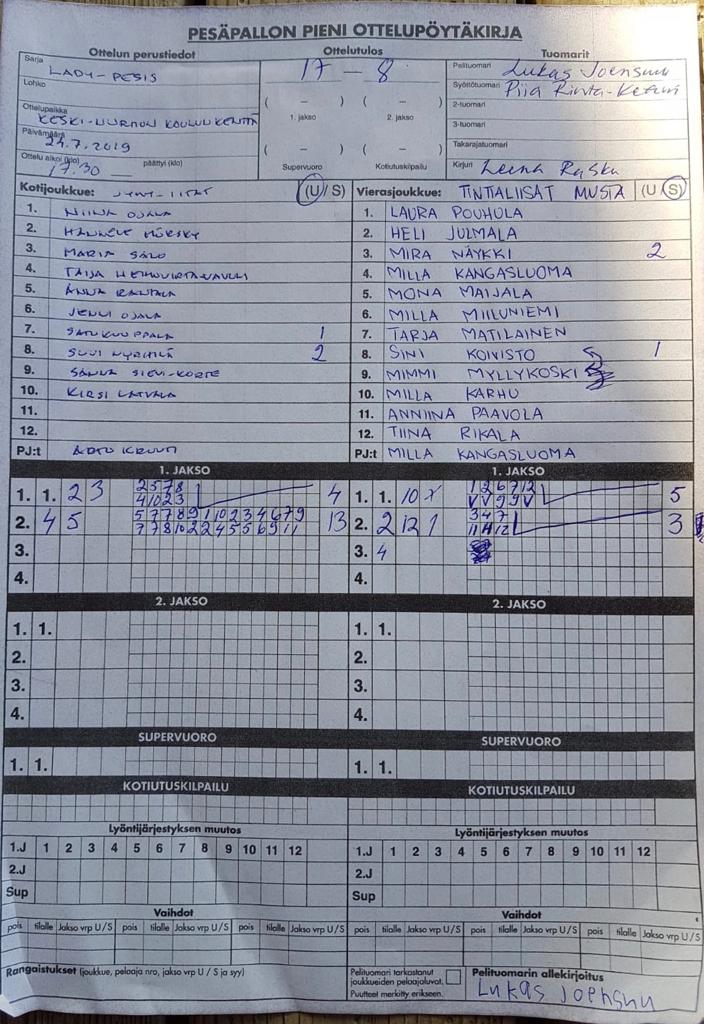 PESÄPALLON PIENI OTTELUPÖYTÄKIRJA
Ottelun perustiedot Ottelutulos Tuomarit
Sarja LADY-PESIS
17 – 8
Pelituomari Lukas Joensuu
Lohko
Syöttötuomari Piia Rinta-Keturi
( – ) ( – )
1. jakso 2. jakso
2-tuomari
Ottelupaikka KESKI-NURMON KOULUN KENTTÄ
3-tuomari
Päivämäärä 24.7.2019
( – ) ( – )
Takarajatuomari
Ottelu alkoi (klo) 17.30 päättyi (klo)
Supervuoro Kotiutuskilpailu
Kirjuri Leena Rasku
Kotijoukkue: (U / S) Vierasjoukkue: TINTTALIISAT MUSTA (U / S)
1. NIINA OJALA 1. LAURA POUHULA
2. 2. HELI JULMALA
3. MARIA SALO 3. MIRA NÄYKKI 2
4. TAIJA 4. MILLA KANGASLUOMA
5. ANNA RANTALA 5. MONA MAIJALA
6. JENNI OJALA 6. MILLA MIILUNIEMI
7. SATU KUUPPALA 1 7. TARJA MATILAINEN
8. SUVI 2 8. SINI KOIVISTO 1
9. SANNA SIEVI-KORTE 9. MIMMI MYLLYKOSKI
10. KIRSI LATVALA 10. MILLA KARHU
11. 11. ANNIINA PAAVOLA
12. 12. TIINA RIKALA
PJ:t PJ:t MILLA KANGASLUOMA
1. JAKSO 1. JAKSO
1. 1. 2 3 2 5 7 8 4 1. 1. 10 1 2 6 7 12 5
4 10 2 3 V V 9 9 V
2. 4 5 5 7 7 8 9 1 10 2 3 4 6 7 9 13 2. 2 12 1 3 4 7 3
7 7 8 10 2 2 4 5 5 6 9 11
3. 3. 4
4. 4.
2. JAKSO 2. JAKSO
1. 1. 1. 1.
2. 2.
3. 3.
4. 4.
SUPERVUORO SUPERVUORO
1. 1. 1. 1.
KOTIUTUSKILPAILU KOTIUTUSKILPAILU
Lyöntijärjestyksen muutos Lyöntijärjestyksen muutos
1.J 1 2 3 4 5 6 7 8 9 10 11 12 1.J 1 2 3 4 5 6 7 8 9 10 11 12
2.J 2.J
Sup Sup
Vaihdot Vaihdot
pois tilalle Jakso vrp U/S pois tilalle Jakso vrp U/S pois tilalle Jakso vrp U/S pois tilalle Jakso vrp U/S pois tilalle Jakso vrp U/S pois tilalle Jakso vrp U/S
Rangaistukset (joukkue, pelaaja nro, jakso vrp U / S ja syy)
Pelituomari tarkastanut
joukkueiden pelaajaluvat.
Puutteet merkitty erikseen.
Pelituomarin allekirjoitus
Lukas Joensuu